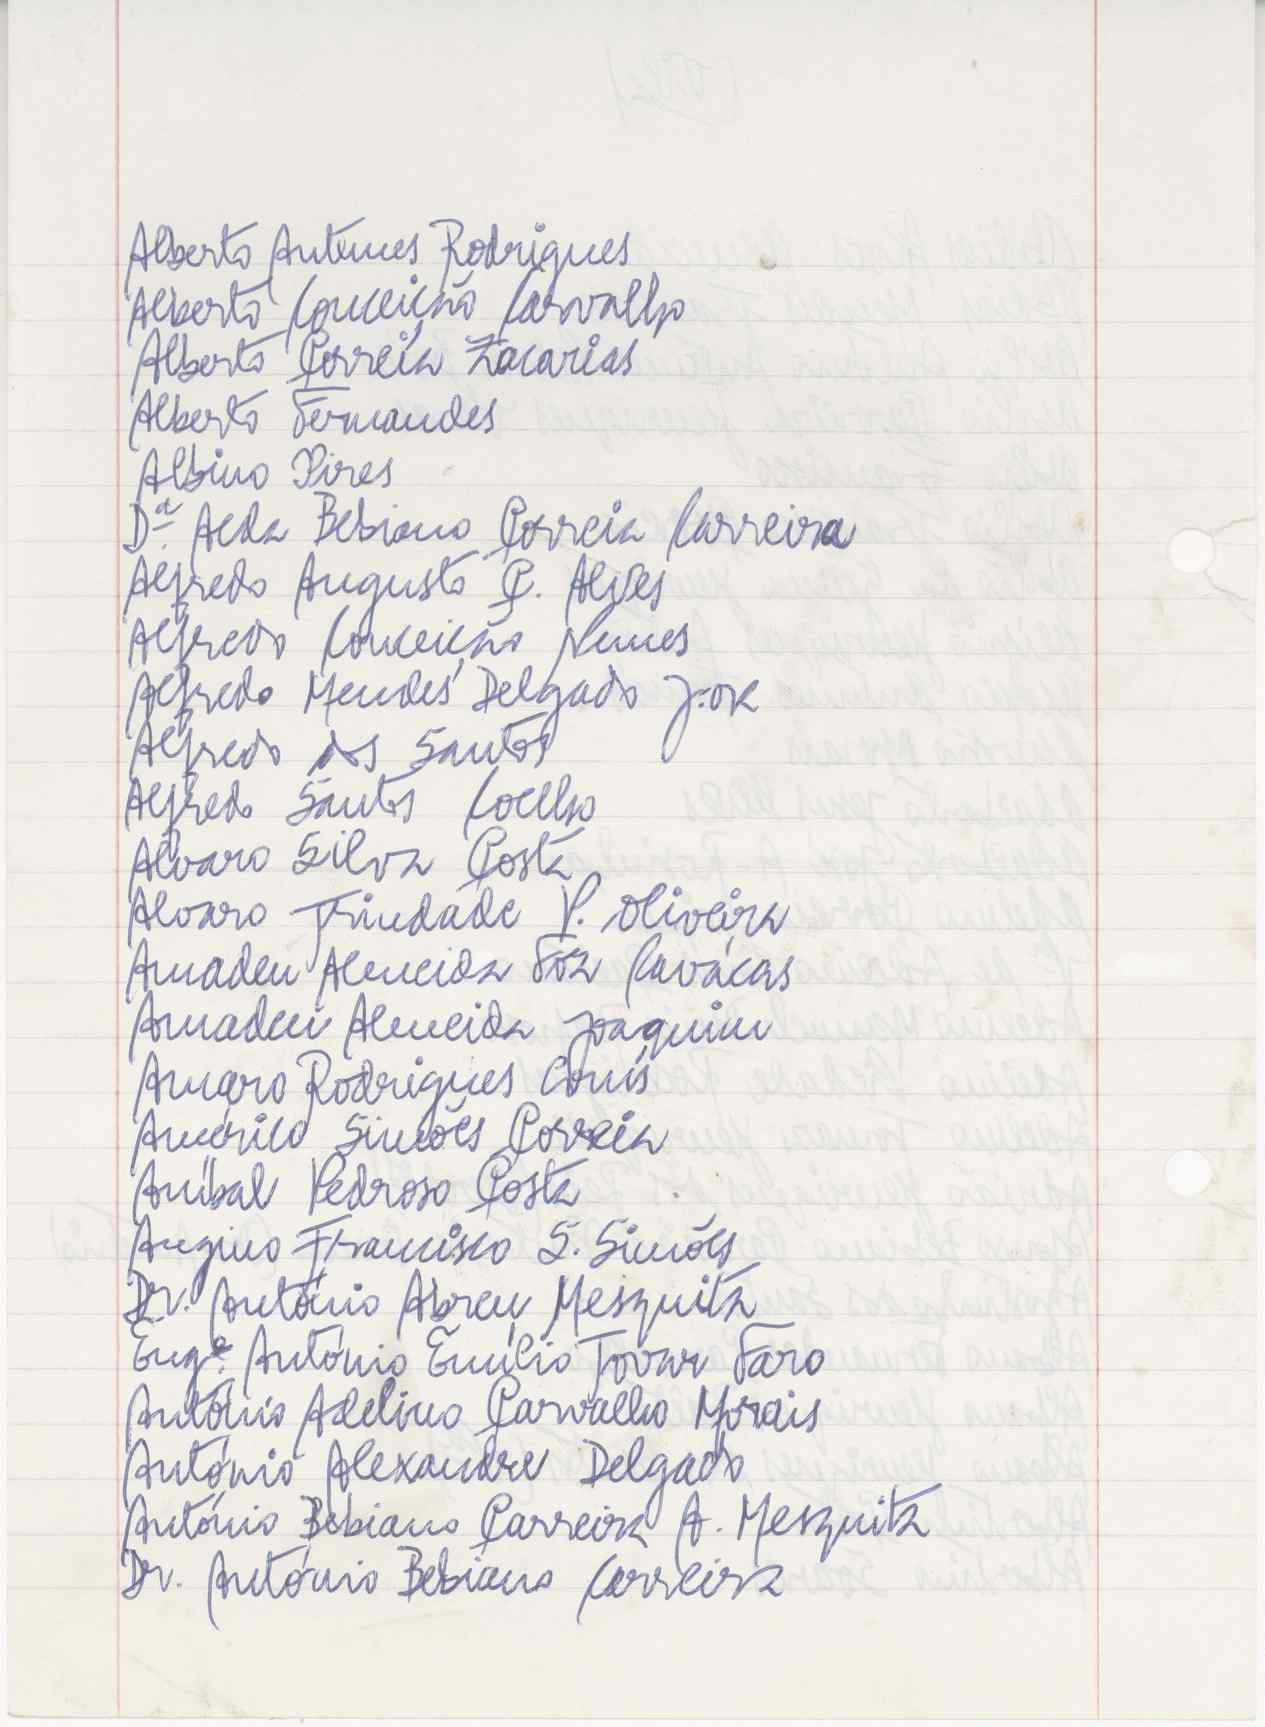 Alberto Antunes Rodrigues
Alberto Conceição Carvalho
Alberto Correia Zacarias
Alberto Fernandes
Albino Pires
D.ª Alda Bebiano Correia Carreira
Alfredo Augusto C. Alves
Alfredo Conceição Nunes
Alfredo Mendes Delgado J.or
Alfredo dos Santos
Alfredo Santos Coelho
Alvaro Silva Costa
Alvaro Trindade P. Oliveira
Amadeu Almeida Foz Cavacas
Amadeu Almeida Joaquim
Amaro Rodrigues
Américo Simões Correia
Aníbal Pedroso Costa
Francisco S. Simões
Dr. António Abreu Mesquita
Eng.º António Emílio Tovar Faro
António Adelino Carvalho Morais
António Alexandre Delgado
António Bebiano Carreira A. Mesquita
Dr. António Bebiano Carreira